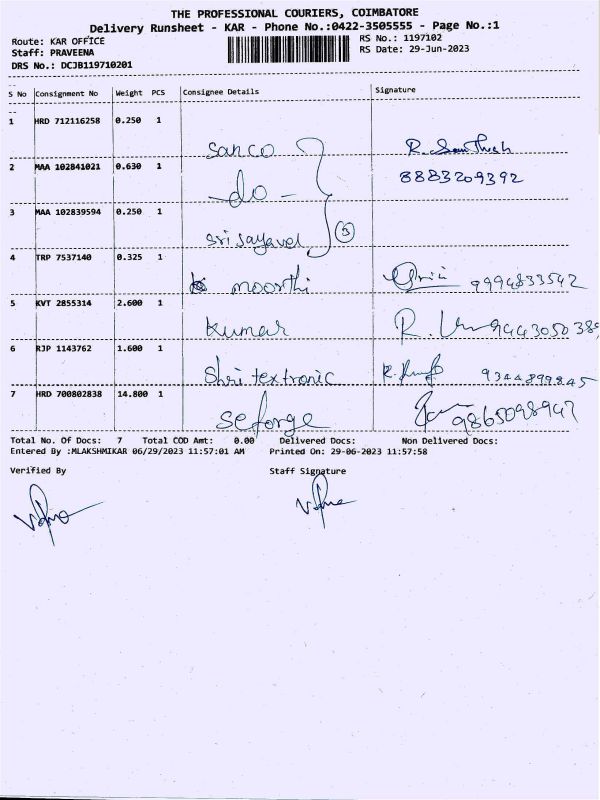 THE PROFESSIONAL COURIERS, COIMBATORE
Delivery Runsheet - KAR - Phone No.:0422-3505555 - Page No.:1
Route: KAR OFFICE
RS No.: 1197102
Staff: PRAVEENA
RS Date: 29-Jun-2023
DRS No.: DCJB119710201
S No Consignment No Weight PCS Consignee Details Signature
1 HRD 712116258 0.250 1
sanco R. Santhosh
2 MAA 102841021 0.630 1
do - 8883209392
3 MAA 102839594 0.250 1
sri jayavel 3
4 TRP 7537140 0.325 1
moorthi 9994833542
5 KVT 2855314 2.600 1
kumar 944305038
6 RJP 1143762 1.600 1
Shri textronic 9344899845
7 HRD 700802838 14.800 1
seforge 9865098947
Total No. Of Docs: 7 Total COD Amt: 0.00 Delivered Docs: Non Delivered Docs:
Entered By :MLAKSHMIKAR 06/29/2023 11:57:01 AM Printed On: 29-06-2023 11:57:58
Verified By Staff Signature